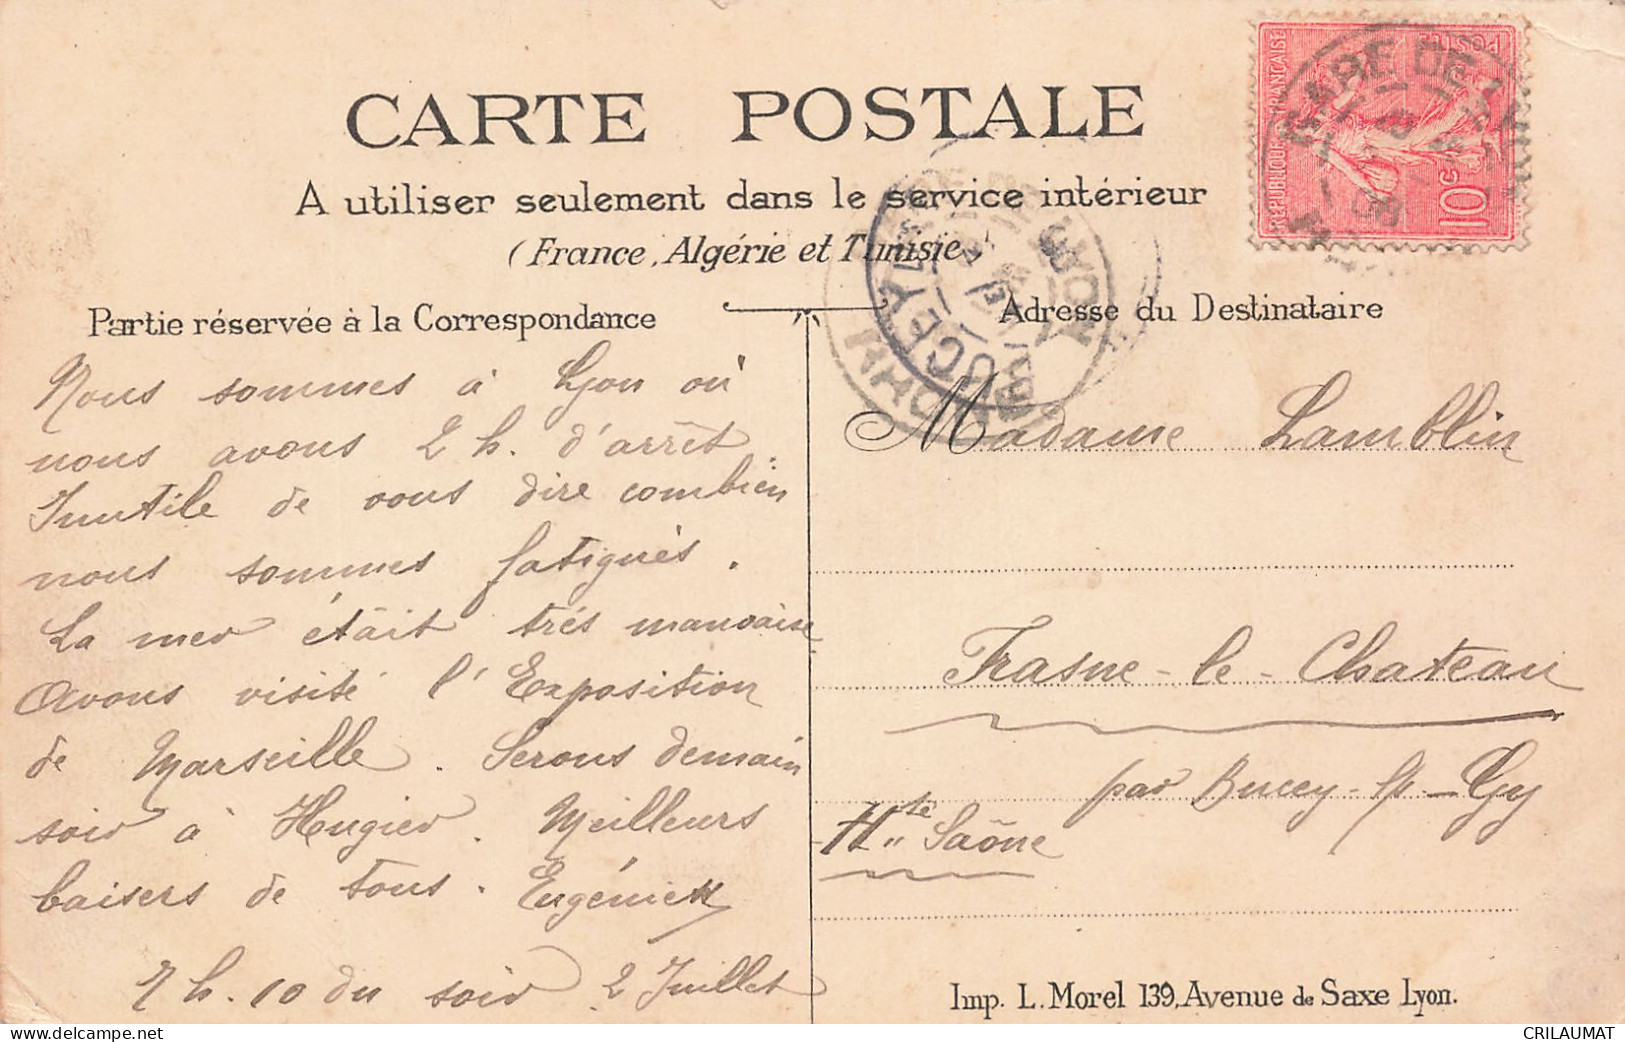 CARTE POSTALE
A utiliser seulement dans le service intérieur
(France, Algérie et Tunisie)
Partie réservée à la Correspondance
Nous sommes à Lyon où
nous avons 2 h. d'arrêt.
Inutile de vous dire combien
nous sommes fatigués.
La mer était très mauvaise
Avons visité l'Exposition
de Marseille. Serons demain
soir à Hugier. Meilleurs
baisers de tous. Eugénie
7 h. 10 du soir 2 Juillet
Adresse du Destinataire
Madame Lamblin
Frasne-le-Chateau
par Bucey-l-Gy
Hte Saône
Imp. L. Morel 139, Avenue de Saxe Lyon.
REPUBLIQUE FRANCAISE
POSTES
10c
GARE DE LYON
RHONE
LYON
RHONE
BUCEY
CRILAUMAT